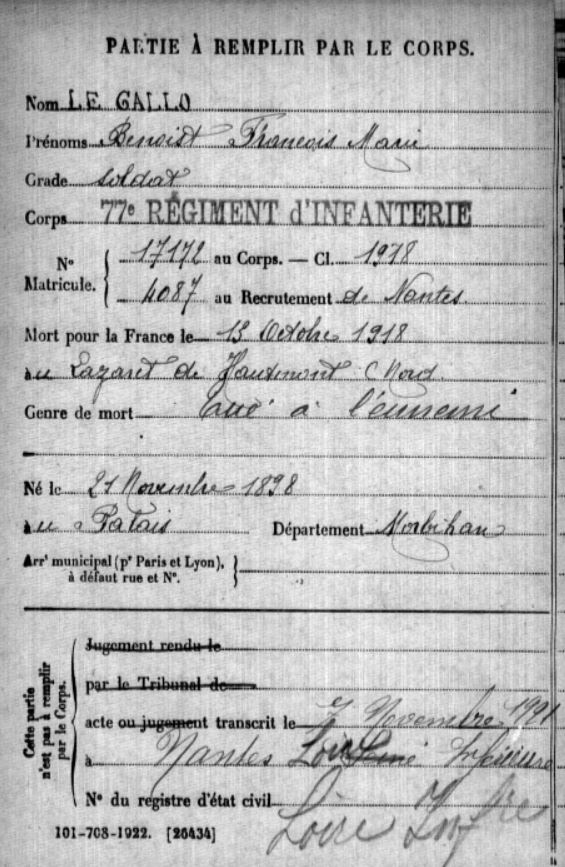 PARTIE À REMPLIR PAR LE CORPS.
Nom LE GALLO
Prénoms Benoist François Marie
Grade soldat
Corps 77e RÉGIMENT d'INFANTERIE
No Matricule. 17172 au Corps. — Cl. 1918
4087 au Recrutement de Nantes
Mort pour la France le 13 Octobre 1918
au Lazaret de Hautmont (Nord
Genre de mort tué à l'ennemi
Né le 21 Novembre 1898
au Palais Département Morbihan
Arrt municipal (pr Paris et Lyon),
à défaut rue et No.
Cette partie n'est pas à remplir par le Corps.
Jugement rendu le
par le Tribunal de
acte ou jugement transcrit le 7 Novembre 1921
à Nantes Inférieure
No du registre d'état civil
Loire Infre
101-708-1922. [26434]